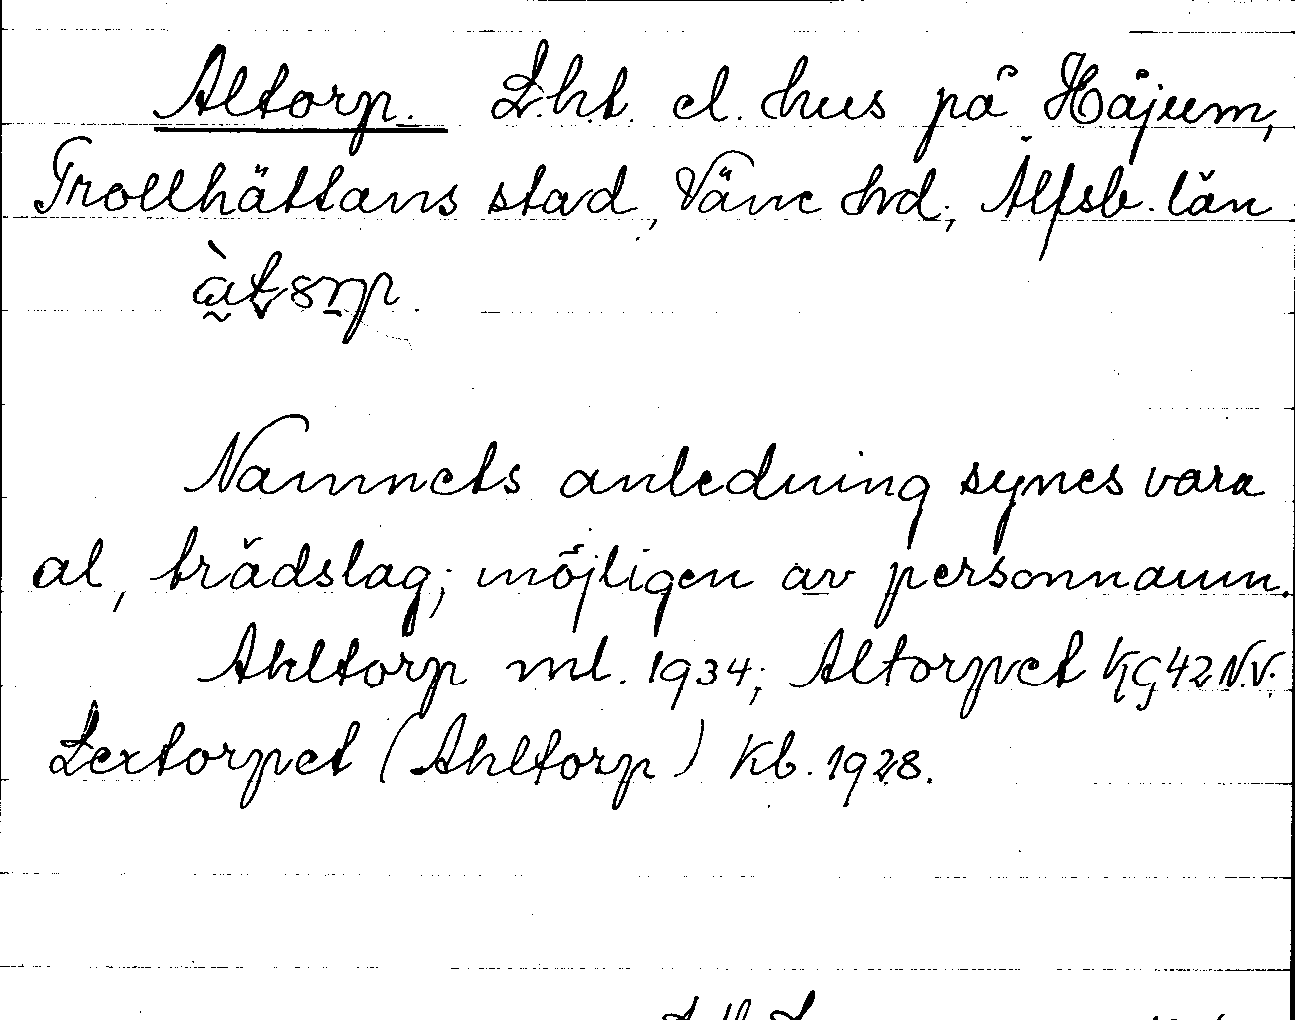 Altorp. Lht. el. hus på Håjum,
Trollhättans stad, Väne hd, Älfsb. län
Namnets anledning synes vara
al, trädslag; möjligen av personnamn.
Ahltorp ml. 1934; Altorpet KG42 N.V.
Lextorpet (Ahltorp) Kb. 1928.